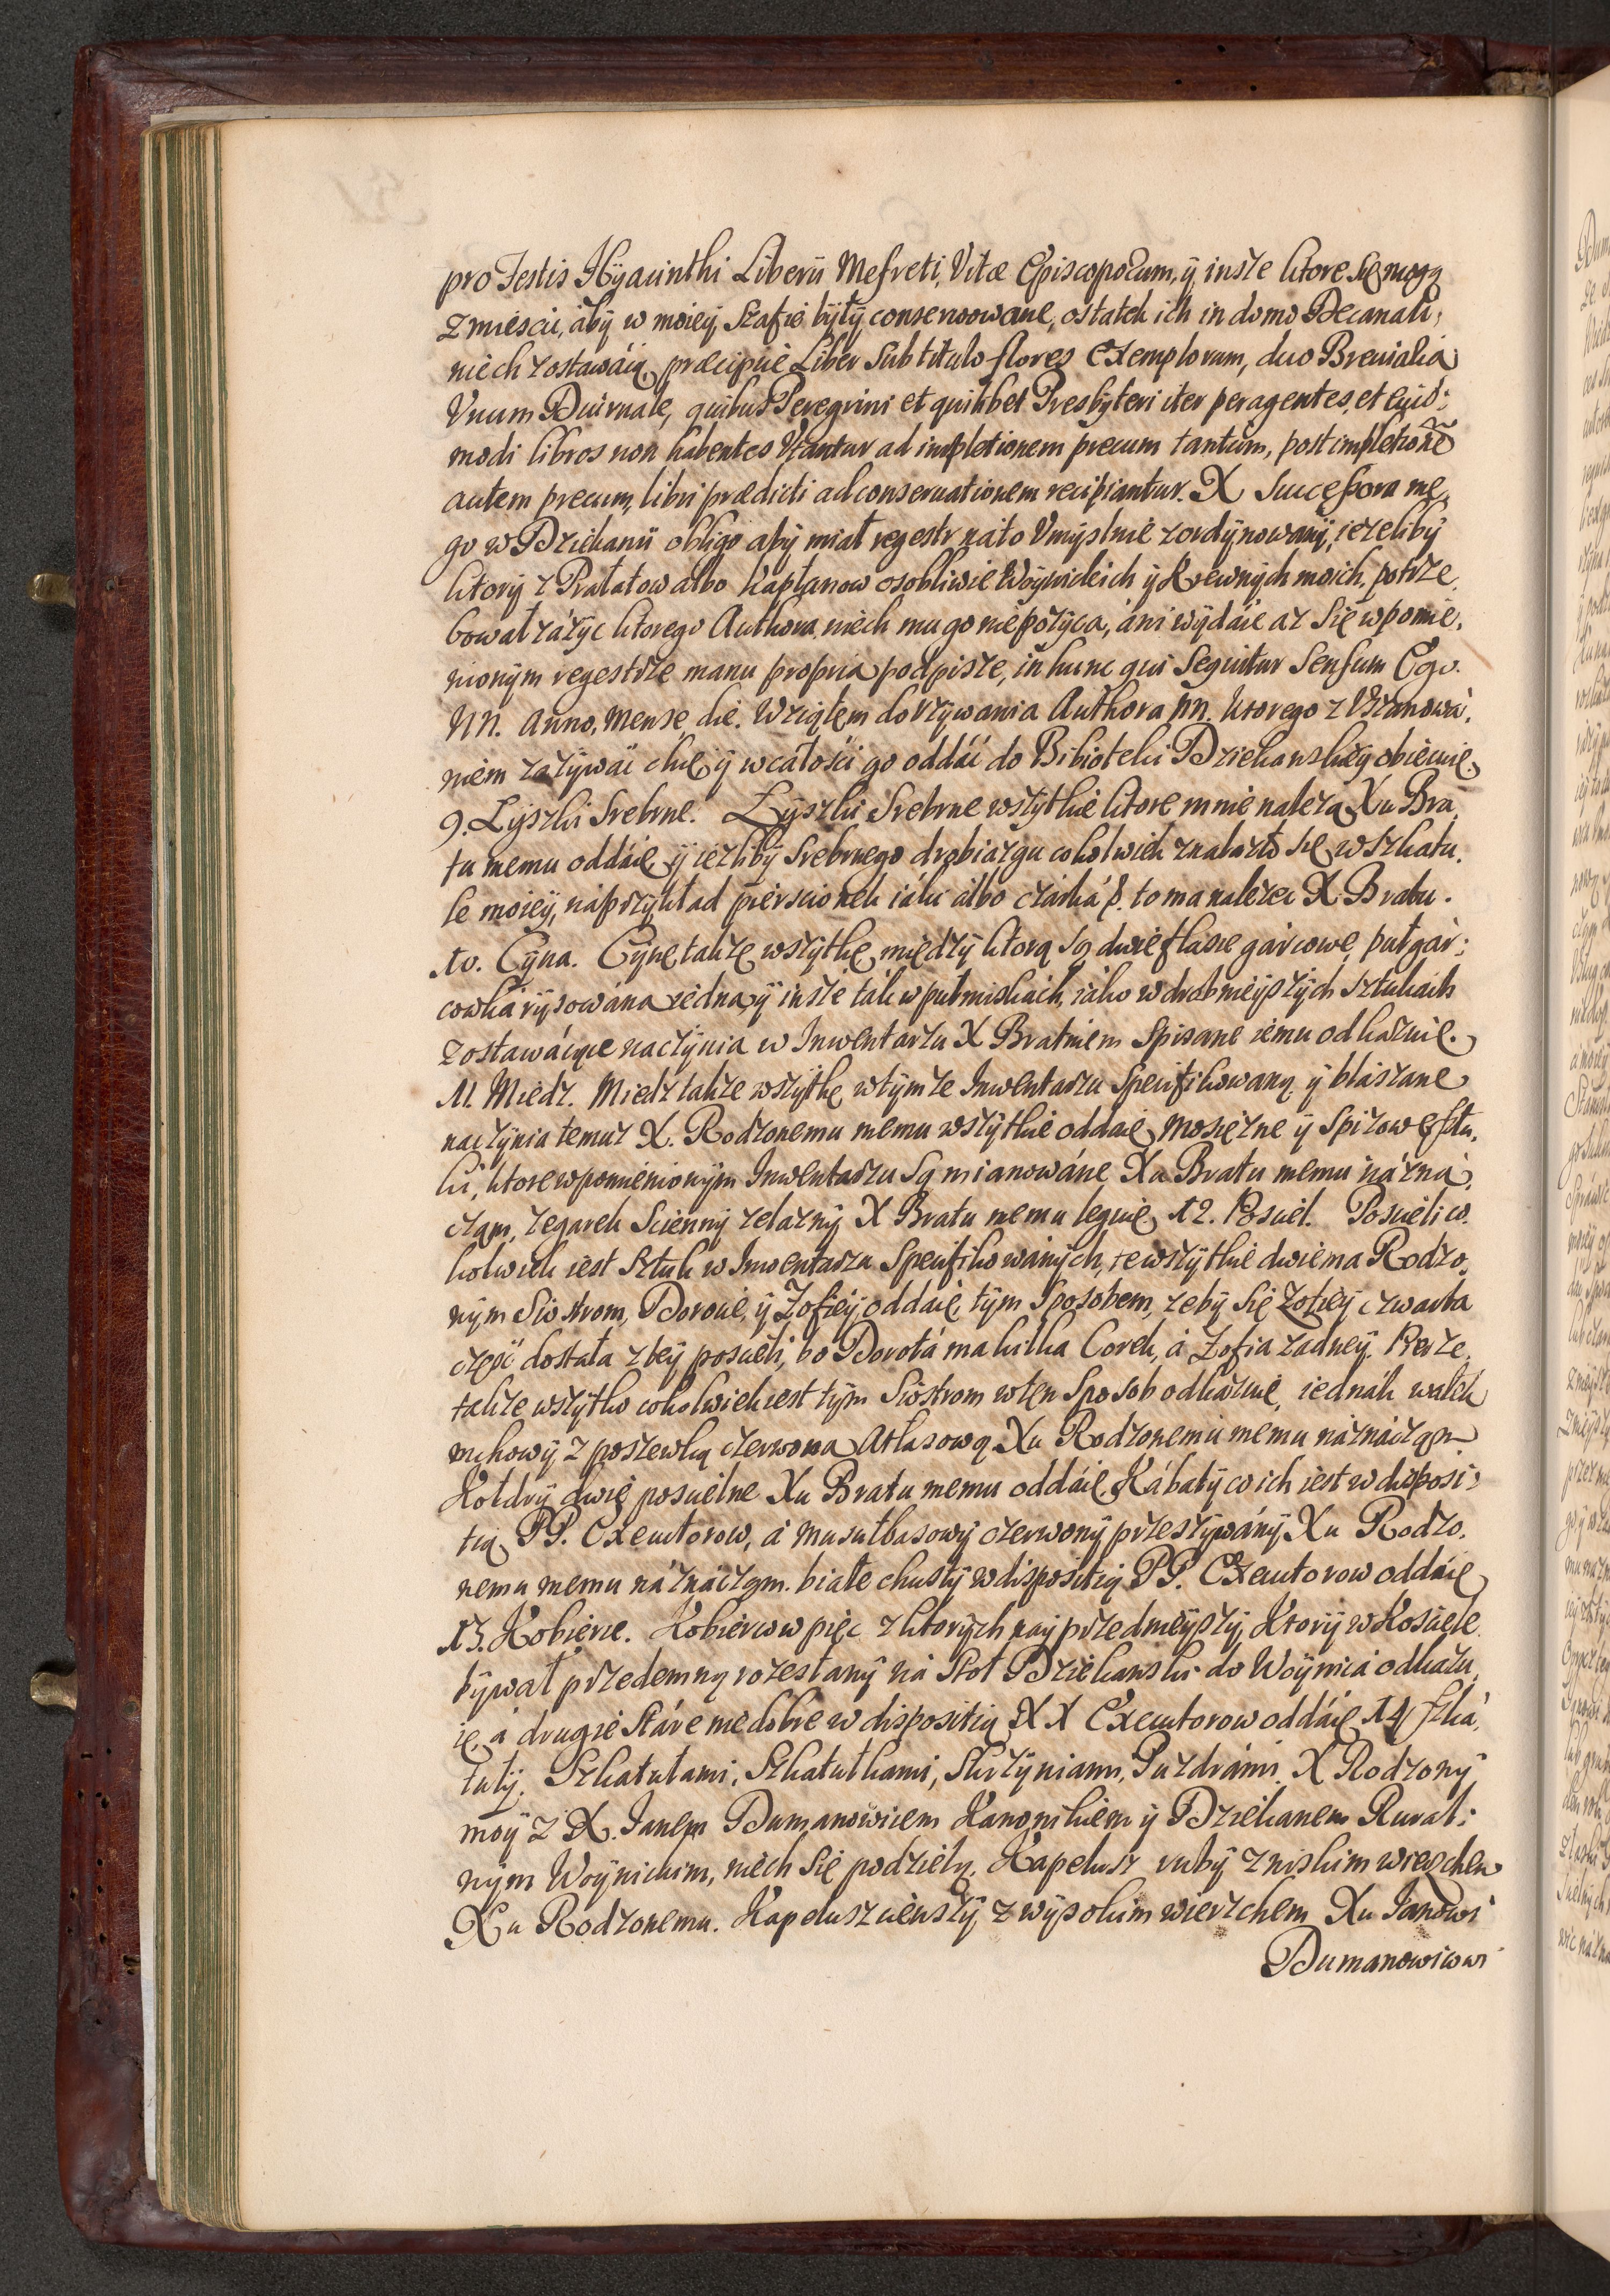 pro Festis Hyacinthi Liberii Mefreti, Vitæ Episcoporum, ÿ insze ktore się mogą
zmieścić, abÿ w moieÿ Szafie bÿłÿ conserwowane, ostatek ich in domo Decanali,
niech zostawáią, præcipuè Liber Sub titulo flores Exemplorum, duo Breuiaria
Vnum Diurnale, quibus Peregrini et quilibet Presbyteri iter peragentes, et eius:
modi libros non habentes Vtantur ad impletionem precum tantùm, post impletionẽ
autem precum, libri prædicti ad conseruationem recipiantur. X Successora me,
go w Dziekanii obligo abÿ miał regestr náto Vmÿslnie zordÿnowanÿ, iezelibÿ
ktorÿ z Prałatow albo Kapłanow osobliwie Woÿnickich ÿ Krewnÿch moich, potrze,
bował záżÿc ktorego Authora, niech mu go nie pożÿca, áni wÿdáie aż się w pomie,
nionÿm regestrze manu propria podpisze, in hunc qui Sequitur Sensum Ego.
NN. Anno, Mense, die. Wziąłem do Vżÿwania Authora NN. ktorego z Vszanowá,
niem zażÿwáć chcę ÿ w całośći go oddáć do Biblioteki Dziekanskieÿ obiecuię.
9. Łÿszki Srebrne. Łÿszki Srebrne wszÿtkie ktore mnie należą Xu Bra,
tu memu oddáię ÿ ieżlibÿ Srebrnego drobiazgu cokolwiek znalazło się w Szkatu,
le moieÿ, náprzÿkład pierscionek iáki álbo czáská &. to ma należeć X. Bratu.
10. Cÿna. Cÿnę takze wszÿtkę międzÿ ktorą są dwie flasze gárcowe, pułgár:
cowká rÿsowána iedna, ÿ insze ták w pułmiskách, iáko w drobnieÿszÿch Sztukách
zostawáiące naczÿnia w Inwentarzu X Bratniem Spisane iemu odkazuię.
11. Miedz. Miedz takze wszÿtkę w tÿmże Inwentarzu Specifikowaną ÿ blászane
naczÿnia temuz X. Rodzonemu memu wszÿtkie oddaię, Mosiężne ÿ Spizowe sztu,
ki, ktore w pomienionÿm Inwentarzu Są mianowáne Xu Bratu memu náznа́,
czam, Zegarek Sciennÿ zelaznÿ X Bratu memu leguię. 12. Posciel. Poscieli co
kolwiek iest Sztuk w Inwentarzu Specifikowánÿch, te wszÿtkie dwiema Rodzo,
nÿm Siostrom, Dorocie, ÿ Zofieÿ oddáię, tÿm Sposobem, żebÿ się Zofieÿ czwarta
częsć dostała z teÿ poscieli, bo Dorotá ma kilka Corek, á Zofia żadneÿ. Pierze
takze wszÿtko cokolwiek iest tÿm Siostrom w ten Sposob odkázuię, iednák
puchowÿ z poszewką czerwoną Atłasową Xu Rodzonemu memu náznáczam
Kołdrÿ dwie poscielne Xu Bratu memu oddáię. Kábatÿ co ich iest w disposi:
tią PP. Exekutorow, á musułbasowÿ czerwonÿ przeszÿwánÿ, Xu Rodzo,
nemu memu náznáczam. białe chustÿ w dispositią PP. Exekutorow oddáię
13. Kobierce. Kobiercow pięć z ktorÿch naÿprzednieÿszÿ, Ktorÿ w Kosciele
bÿwał przedemną rozesłanÿ ná Stoł Dziekanski do Woÿnicá odkazu,
ię, á drugie Stáre niedobre w dispositią XX Exekutorow oddáię. 14. Szká,
tułÿ. Szkatułami, Szkatułkami, Skrzÿniami, Puzdrámi, X Rodzonÿ
moÿ z X. Janem Dumanowicem Kanonikiem ÿ Dziekanem Rural:
nÿm Woÿnickim, niech się podzielą. Kapelusz rubÿ z niskim wierzchem
Xu Rodzonemu. Kapelusz cienszÿ z wÿsokim wierzchem Xu Janowi
Dumanowicowi